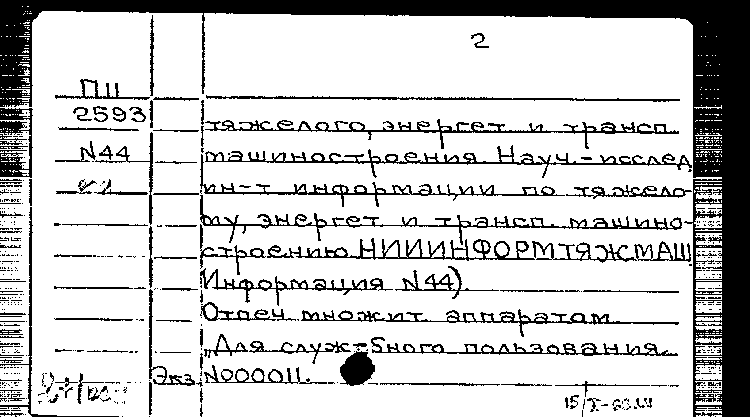 2
П11
2593
тяжелого, энергет. и трансп.
N44
машиностроения. Науч.-исслед.
ин-т информации по тяжело-
му, энергет. и трансп. машино-
строению НИИИНФОРМТЯЖМАШ
Информация N44).
Отпеч. множит. аппаратом.
„Для служебного пользования„
Экз. N000011.